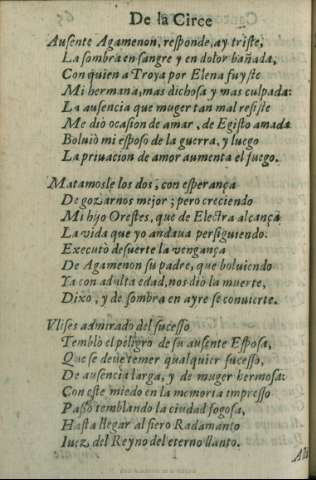 De la Circe
Ausente Agamenon, responde, ay triste,
La sombra en sangre y en dolor bañada,
Con quien a Troya por Elena fuyste
Mi hermana, mas dichosa y mas culpada:
La ausencia que muger tan mal resiste
Me dio ocasion de amar, de Egisto amada
Boluiò mi esposo de la guerra, y luego
La priuacion de amor aumenta el fuego.
Matamosle los dos, con esperança
De gozarnos mejor; pero creciendo
Mi hijo Orestes, que de Electra alcança
La vida que yo andaua persiguiendo:
Executò de suerte la vengança
De Agamenon su padre, que boluiendo
Ya con adulta edad, nos dio la muerte,
Dixo, y de sombra en ayre se conuierte.
Vlises admirado del sucesso
Temblò el peligro de su ausente Esposa,
Que se deue temer qualquier sucesso,
De ausencia larga, y de muger hermosa:
Con este miedo en la memoria impresso
Passò temblando la ciudad fogosa,
Hasta llegar al fiero Radamanto
Iuez del Reyno del eterno llanto.